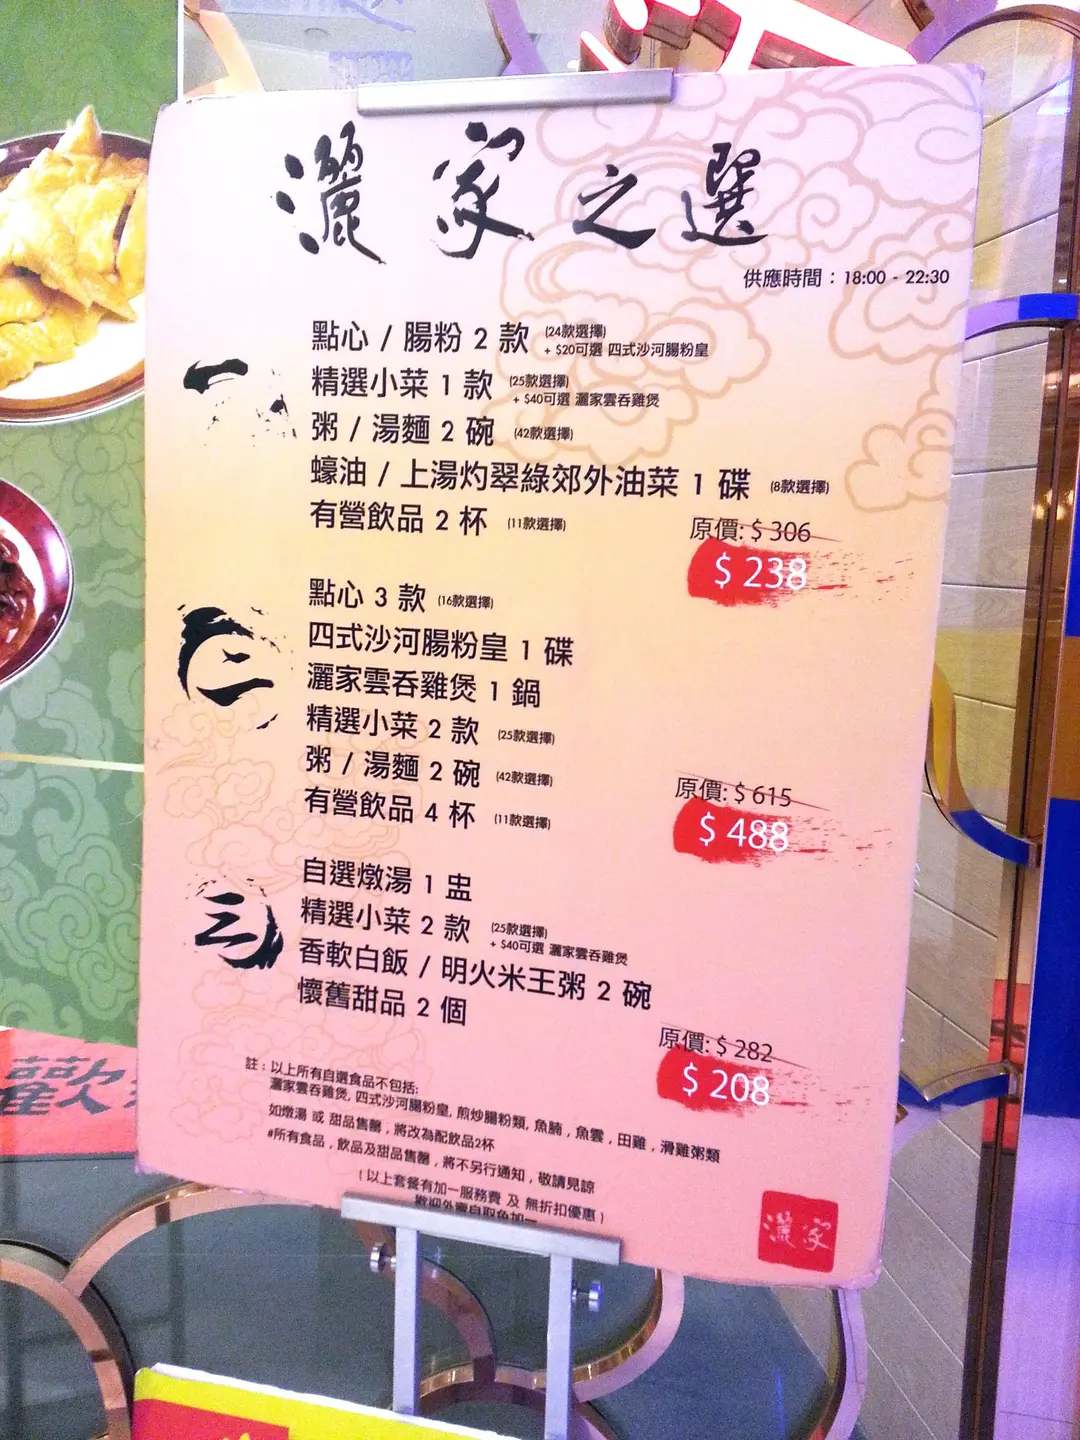 灑家之選
供應時間：18:00 - 22:30
一
點心 / 腸粉 2 款 (24款選擇)
+ $20可選 四式沙河腸粉皇
精選小菜 1 款 (25款選擇)
+ $40可選 灑家雲吞雞煲
粥 / 湯麵 2 碗 (42款選擇)
蠔油 / 上湯灼翠綠郊外油菜 1 碟 (8款選擇)
有營飲品 2 杯 (11款選擇)
原價: $ 306
$ 238
二
點心 3 款 (16款選擇)
四式沙河腸粉皇 1 碟
灑家雲吞雞煲 1 鍋
精選小菜 2 款 (25款選擇)
粥 / 湯麵 2 碗 (42款選擇)
有營飲品 4 杯 (11款選擇)
原價: $ 615
$ 488
三
自選燉湯 1 盅
精選小菜 2 款 (25款選擇)
+ $40可選 灑家雲吞雞煲
香軟白飯 / 明火米王粥 2 碗
懷舊甜品 2 個
原價: $ 282
$ 208
註：以上所有自選食品不包括:
灑家雲吞雞煲, 四式沙河腸粉皇, 煎炒腸粉類, 魚腩，魚雲，田雞，滑雞粥類
如燉湯 或 甜品售罄，將改為配飲品2杯
#所有食品，飲品及甜品售罄，將不另行通知，敬請見諒
(以上套餐有加一服務費 及 無折扣優惠)
歡迎外賣自取免加一
灑家
歡